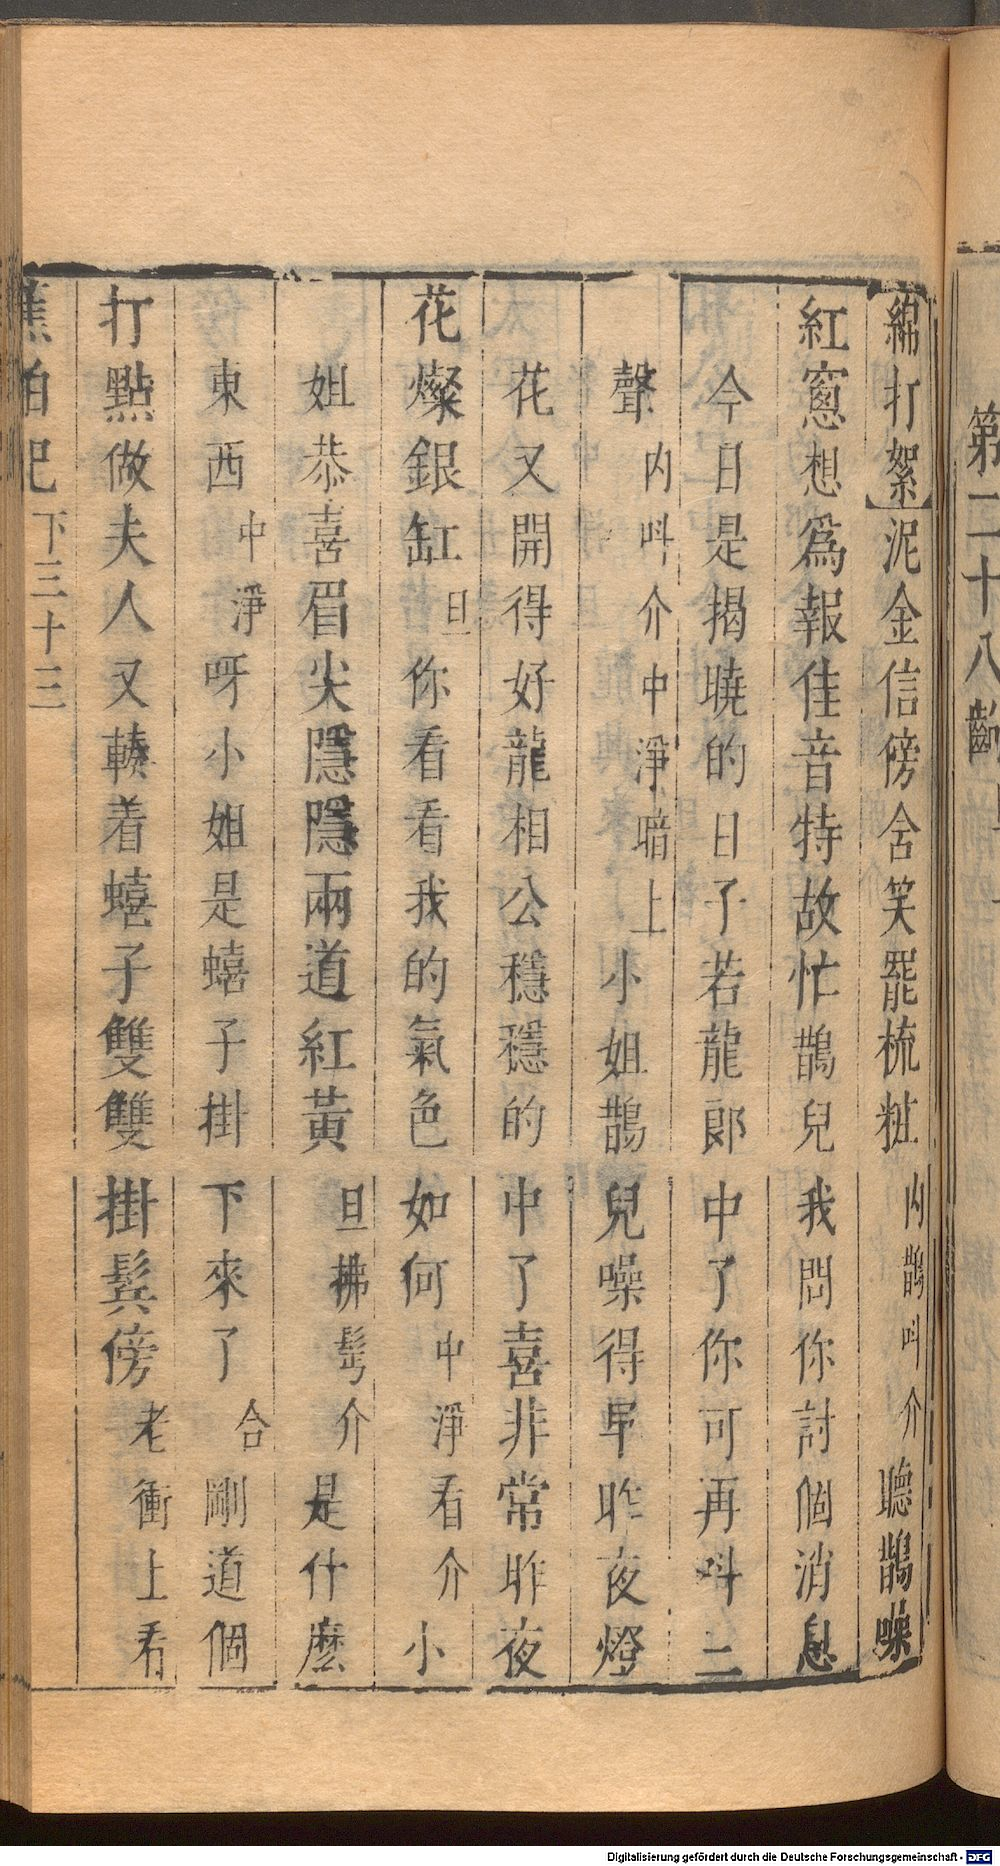 第二十八齣
綿打絮泥金信傍舍笑罷梳粧內鵲叫介聽鵲噪
紅窻想爲報佳音特故忙鵲兒我問你討個消息
今日是揭曉的日子若龍郎中了你可再叫二
聲內叫介中淨暗上小姐鵲兒噪得早昨夜燈
花又開得好龍相公穩穩的中了喜非常昨夜
花燦銀缸旦你看看我的氣色如何中淨看介小
姐恭喜眉尖隱隱兩道紅黃旦拂髩介是什麼
東西中淨呀小姐是蟢子掛下來了合剛道個
打點做夫人又轃着蟢子雙雙掛鬂傍老衝上看
蕉帕記 下三十三
Digitalisierung gefördert durch die Deutsche Forschungsgemeinschaft - DFG